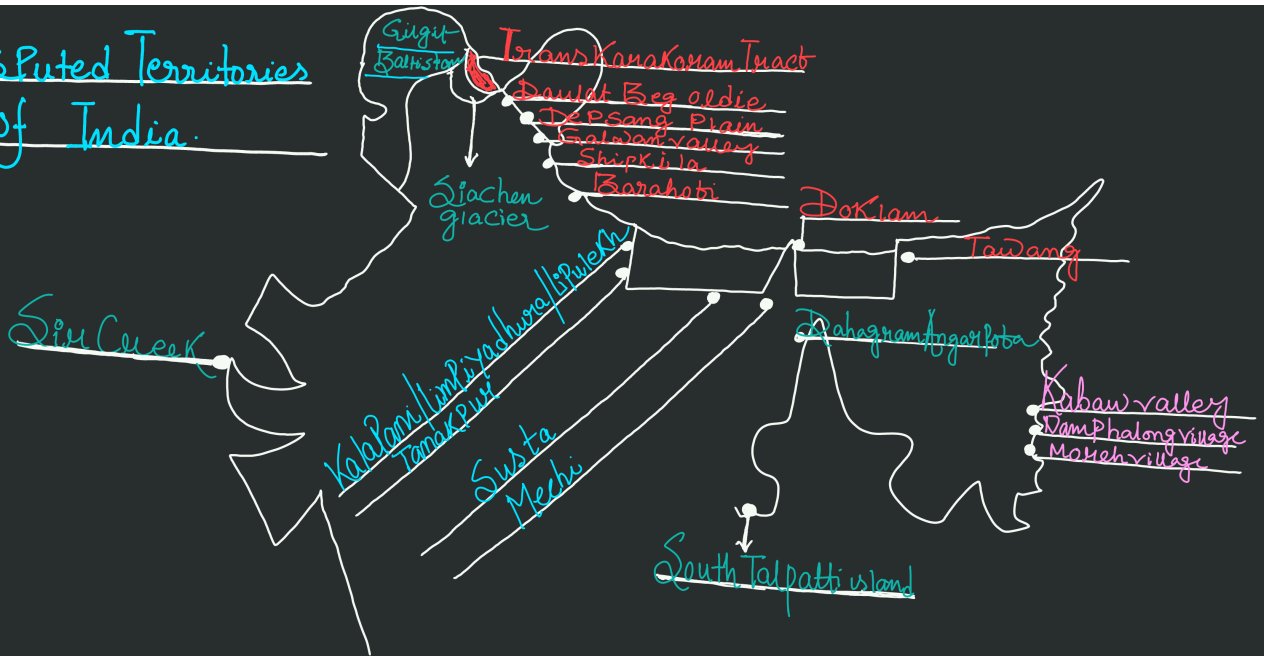 sputed Territories
of India.
Gilgit
Baltistan
Trans Karakoram Tract
Daulat Beg Oldie
Depsang Plain
Galwan valley
Shipkila
Barahoti
Siachen
glacier
Doklam
Tawang
Sir Creek
Kalapani/Limpiyadhura/Lipulekh
Tanakpur
Susta
Mechi
Dahagram Angarpota
Kabaw valley
Namphalong village
Moreh village
South Talpatti island